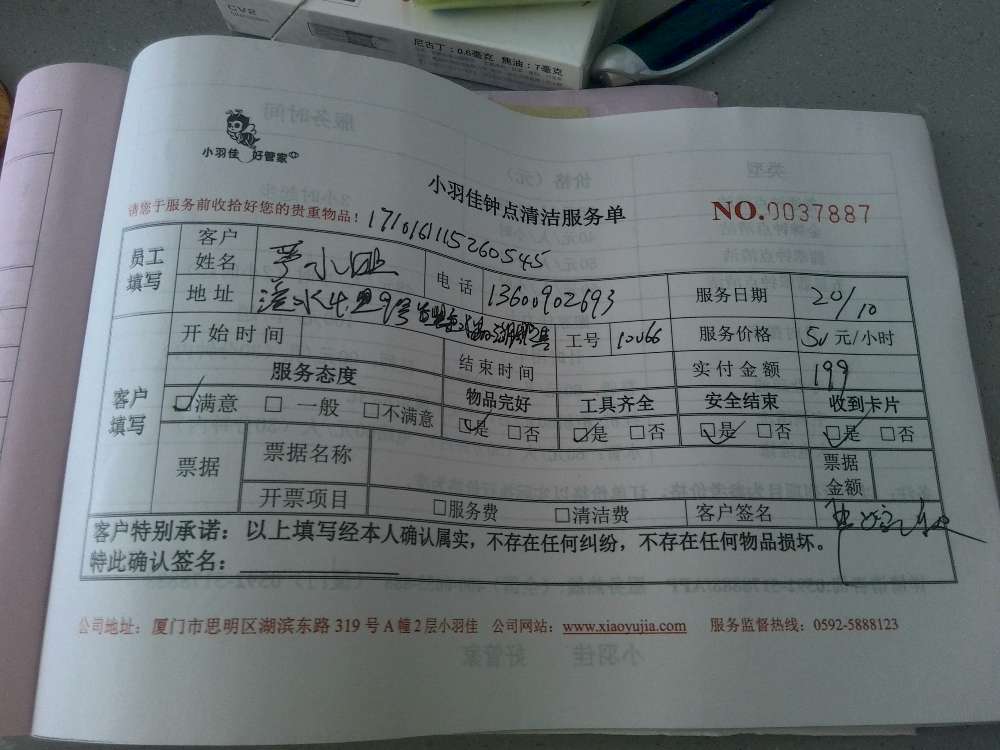 CV2
尼古丁：0.6毫克 焦油：7毫克
小羽佳 好管家
小羽佳钟点清洁服务单
请您于服务前收拾好您的贵重物品！
1710161115260545
NO.0037887
员工填写 客户姓名 电话 13600902693 服务日期 20/10
地址 工号 10066 服务价格 50元/小时
客户填写 开始时间 结束时间 实付金额 199
服务态度 物品完好 工具齐全 安全结束 收到卡片
☑满意 □一般 □不满意 ☑是 □否 ☑是 □否 ☑是 □否 ☑是 □否
票据 票据名称 票据金额
开票项目 □服务费 □清洁费 客户签名
客户特别承诺：以上填写经本人确认属实，不存在任何纠纷，不存在任何物品损坏。
特此确认签名：
公司地址：厦门市思明区湖滨东路 319 号 A 幢 2 层小羽佳 公司网站：www.xiaoyujia.com 服务监督热线：0592-5888123